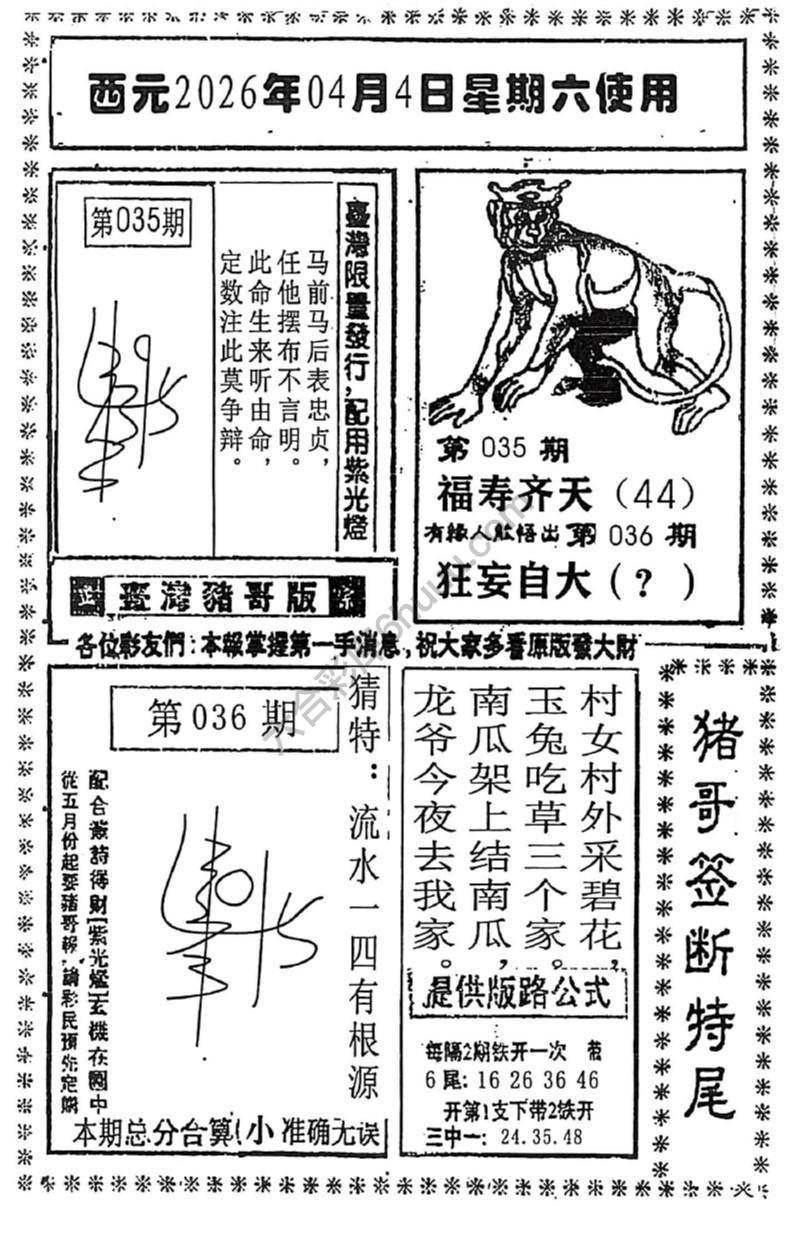 西元2026年04月4日星期六使用
第035期
马前马后表忠贞，
任他摆布不言明。
此命生来听由命，
定数注此莫争辩。
臺灣限量發行，配用紫光燈
第 035 期
福寿齐天（44）
有緣人能悟出第 036 期
狂妄自大（？）
臺灣豬哥版
各位彩友們：本報掌握第一手消息，祝大家多看原版發大財
第 036 期
猜特：流水一四有根源
配合簽詩得財[紫光燈]玄機在圖中
從五月份起要豬哥報，請彩民預先定購
本期总分合算(小 准确无误
村女村外采碧花，
玉兔吃草三个家。
南瓜架上结南瓜，
龙爷今夜去我家。
提供版路公式
每隔2期铁开一次 带
6尾：16 26 36 46
开第1支下带2铁开
三中一：24.35.48
猪哥签断特尾
六合彩库6huuu.com